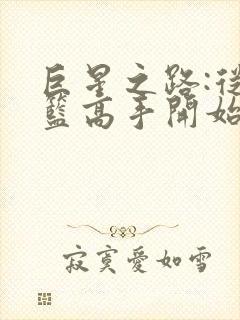 巨星之路:從
籃高手開始
寂寞愛如雪